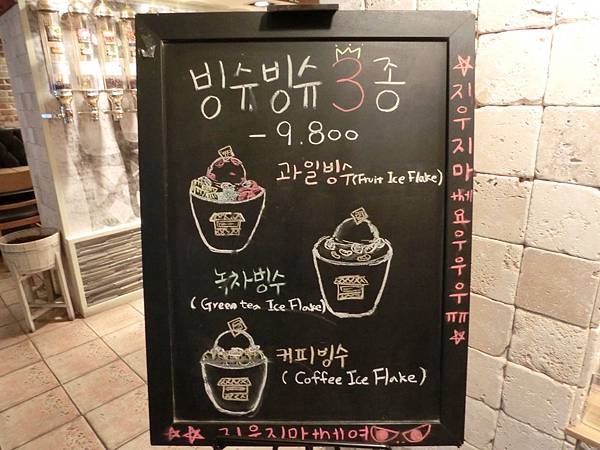 빙슈빙슈 3종
- 9.800
과일빙수 (Fruit Ice Flake)
녹차빙수
(Green tea Ice Flake)
커피빙수
(Coffee Ice Flake)
☆지우지마쎄요우우우ㅠㅠ☆
☆☆ 지우지마쎄여